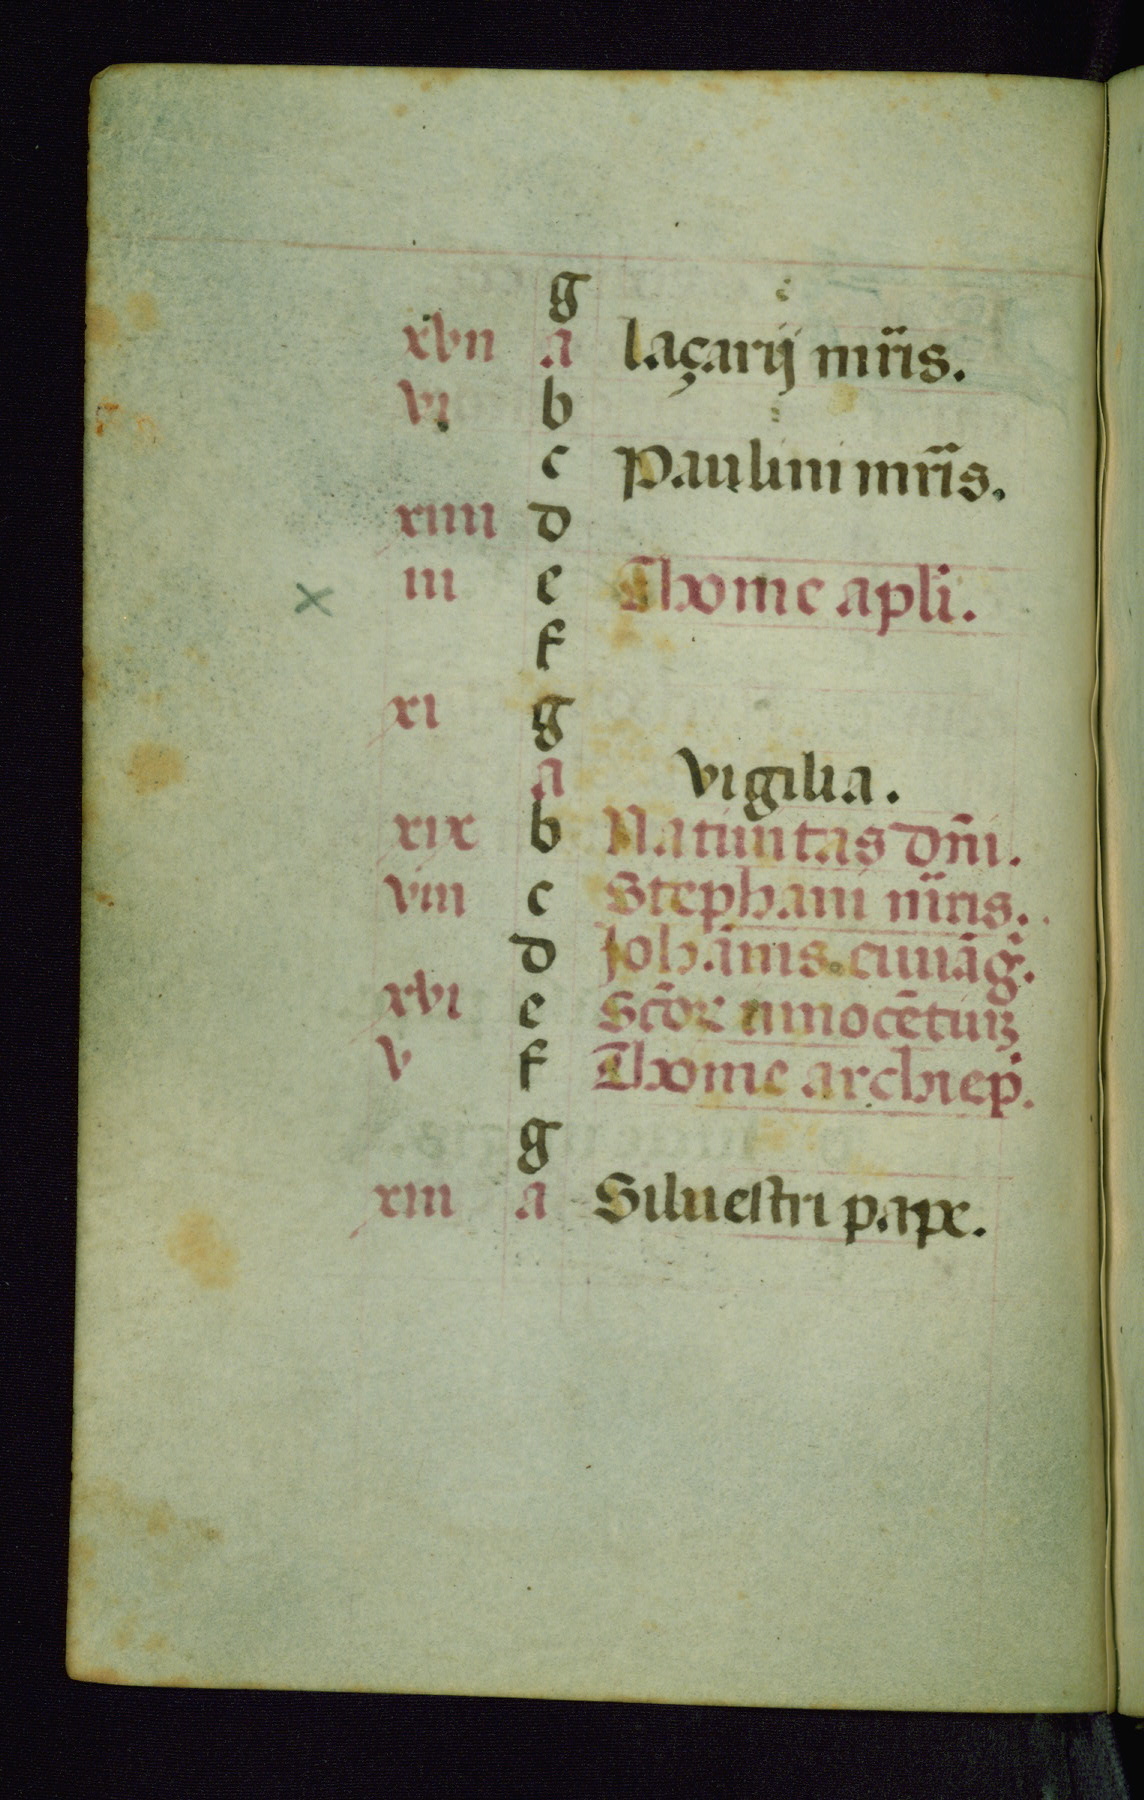 g
xvii a laçarij mr̄is.
vi b
c Paulini mr̄is.
xiiii d
x iii e Thome apli.
f
xi g
a vigilia.
xix b Natiuitas dn̄i.
viii c Stephani mr̄is.
d Joh̄anis. euuāg.
xvi e Sc̄oꝝ innocētuꝫ
v f Thome archiep̄.
g
xiii a Siluestri pape.